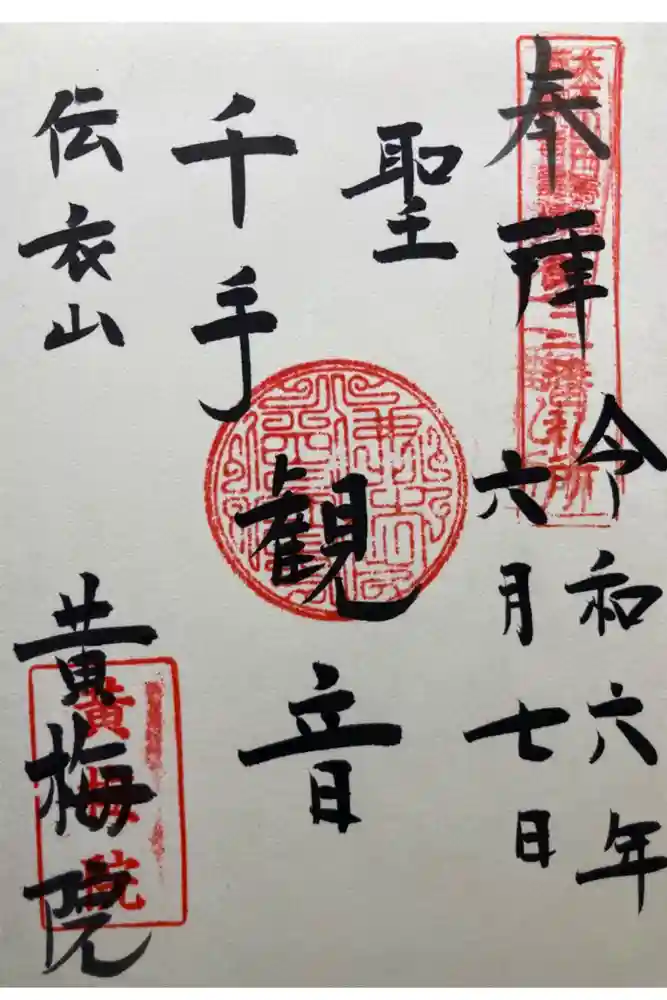 奉拝
令和六年
六月七日
聖
千手
観音
伝衣山
黄梅院
黄梅院